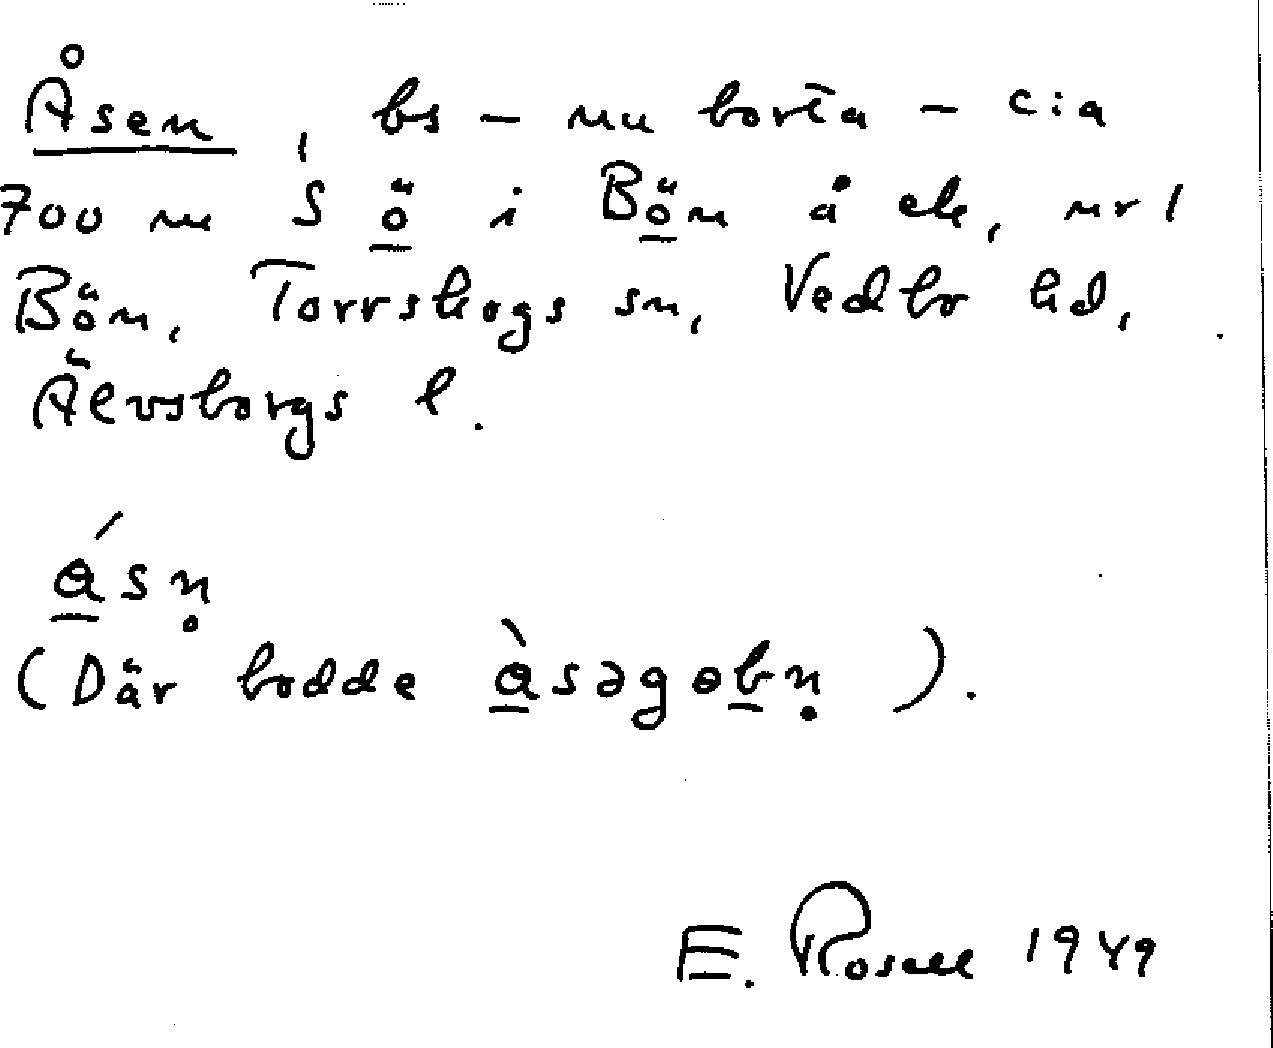 Åsen, bs – nu borta – c:a
700 m S ö i Bön å ek, nr 1
Bön, Torrskogs sn, Vedbo hd,
Älvsborgs l.
ásn̥
(Där bodde àsəgobn̥).
E. Rosell 1949